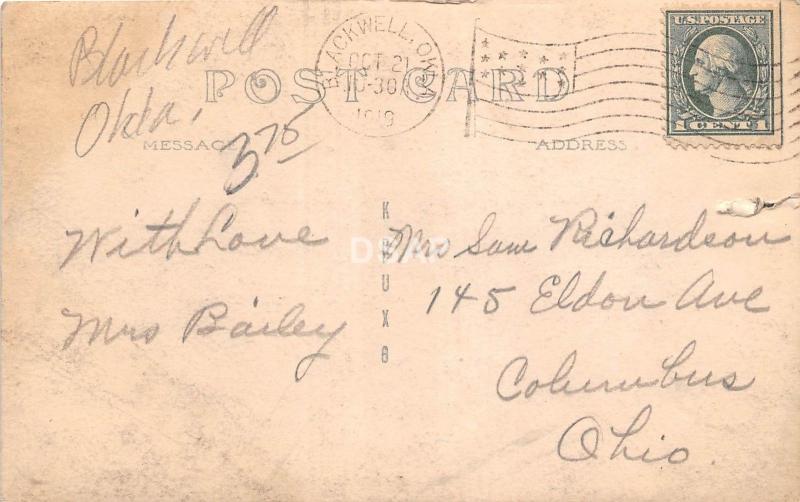 Blackwell
Okla.
3 75
BLACKWELL, OKLA.
OCT 21
1919
U.S. POSTAGE
1 CENT 1
POST CARD
MESSAGE
ADDRESS
With Love
Mrs Bailey
KRUXO
Mrs Sam Richardson
145 Eldon Ave
Columbus
Ohio.